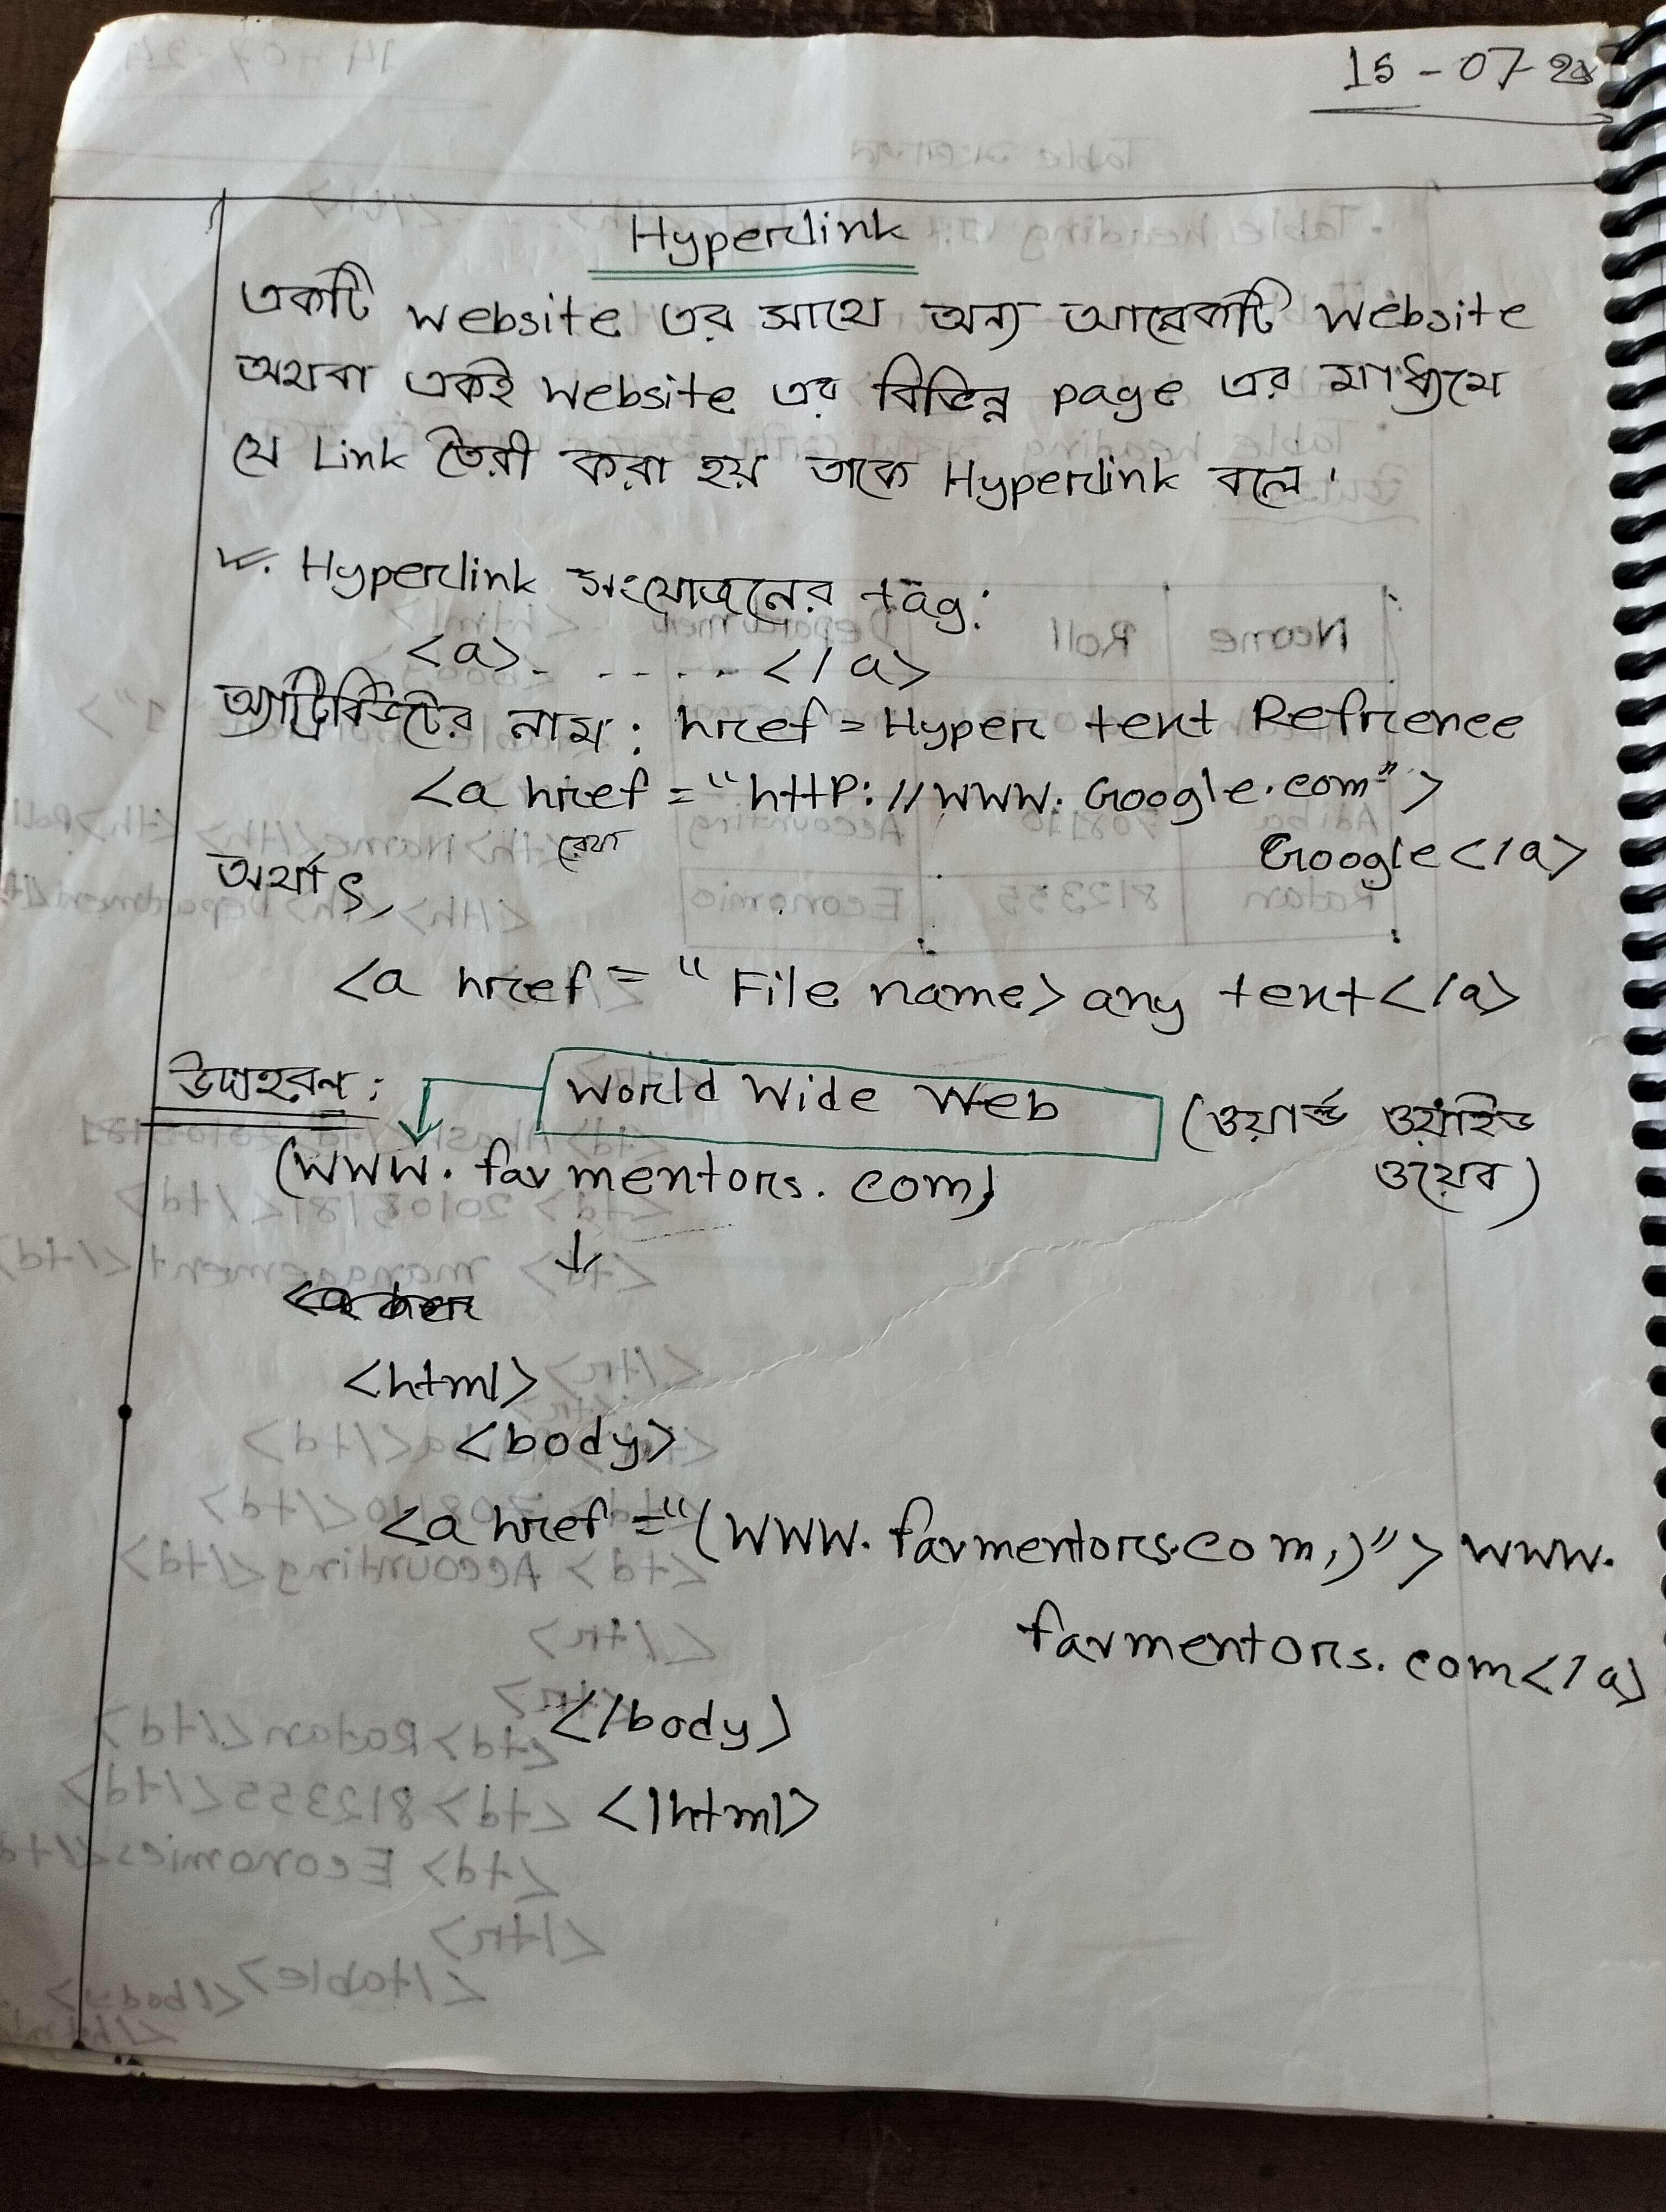 15-07-24
Hyperlink
একটি website এর সাথে অন্য আরেকটি website
অথবা একই website এর বিভিন্ন page এর মাধ্যমে
যে Link তৈরী করা হয় তাকে Hyperlink বলে।
Hyperlink সংযোজনের tag:
<a>. . . . . . </a>
অ্যাট্রিবিউটের নাম: href = Hyper text Refrence
<a href = "http://www.Google.com">
Google</a>
অর্থাৎ,
<a href = "File name> any text</a>
উদাহরন: World Wide Web (ওয়ার্ল্ড ওয়াইড
ওয়েব)
(www.farmentors.com)
↓
<html>
<body>
<a href="(www.farmentors.com,)"> www.
farmentors.com</a>
</body>
</html>